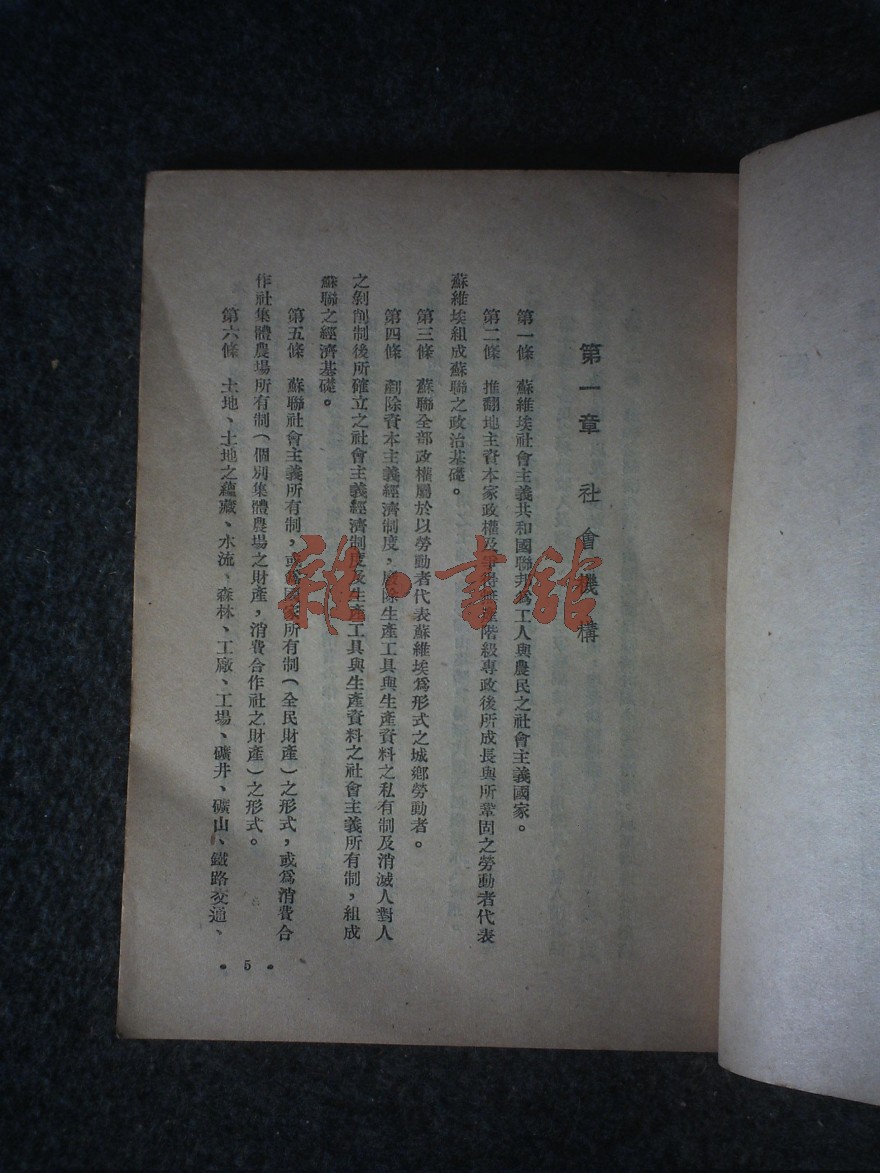 第一章 社會機構
第一條 蘇維埃社會主義共和國聯邦爲工人與農民之社會主義國家。
第二條 推翻地主資本家政權及爭得無產階級專政後所成長與所鞏固之勞動者代表
蘇維埃組成蘇聯之政治基礎。
第三條 蘇聯全部政權屬於以勞動者代表蘇維埃爲形式之城鄉勞動者。
第四條 剷除資本主義經濟制度,廢除生產工具與生產資料之私有制及消滅人對人
之剝削制後所確立之社會主義經濟制度及生產工具與生產資料之社會主義所有制,組成
蘇聯之經濟基礎。
第五條 蘇聯社會主義所有制,或爲國家所有制(全民財產)之形式,或爲消費合
作社集體農場所有制(個別集體農場之財產,消費合作社之財產)之形式。
第六條 土地、土地之蘊藏、水流、森林、工廠、工場、礦井、礦山、鐵路交通、
• 5 •
雜·書館